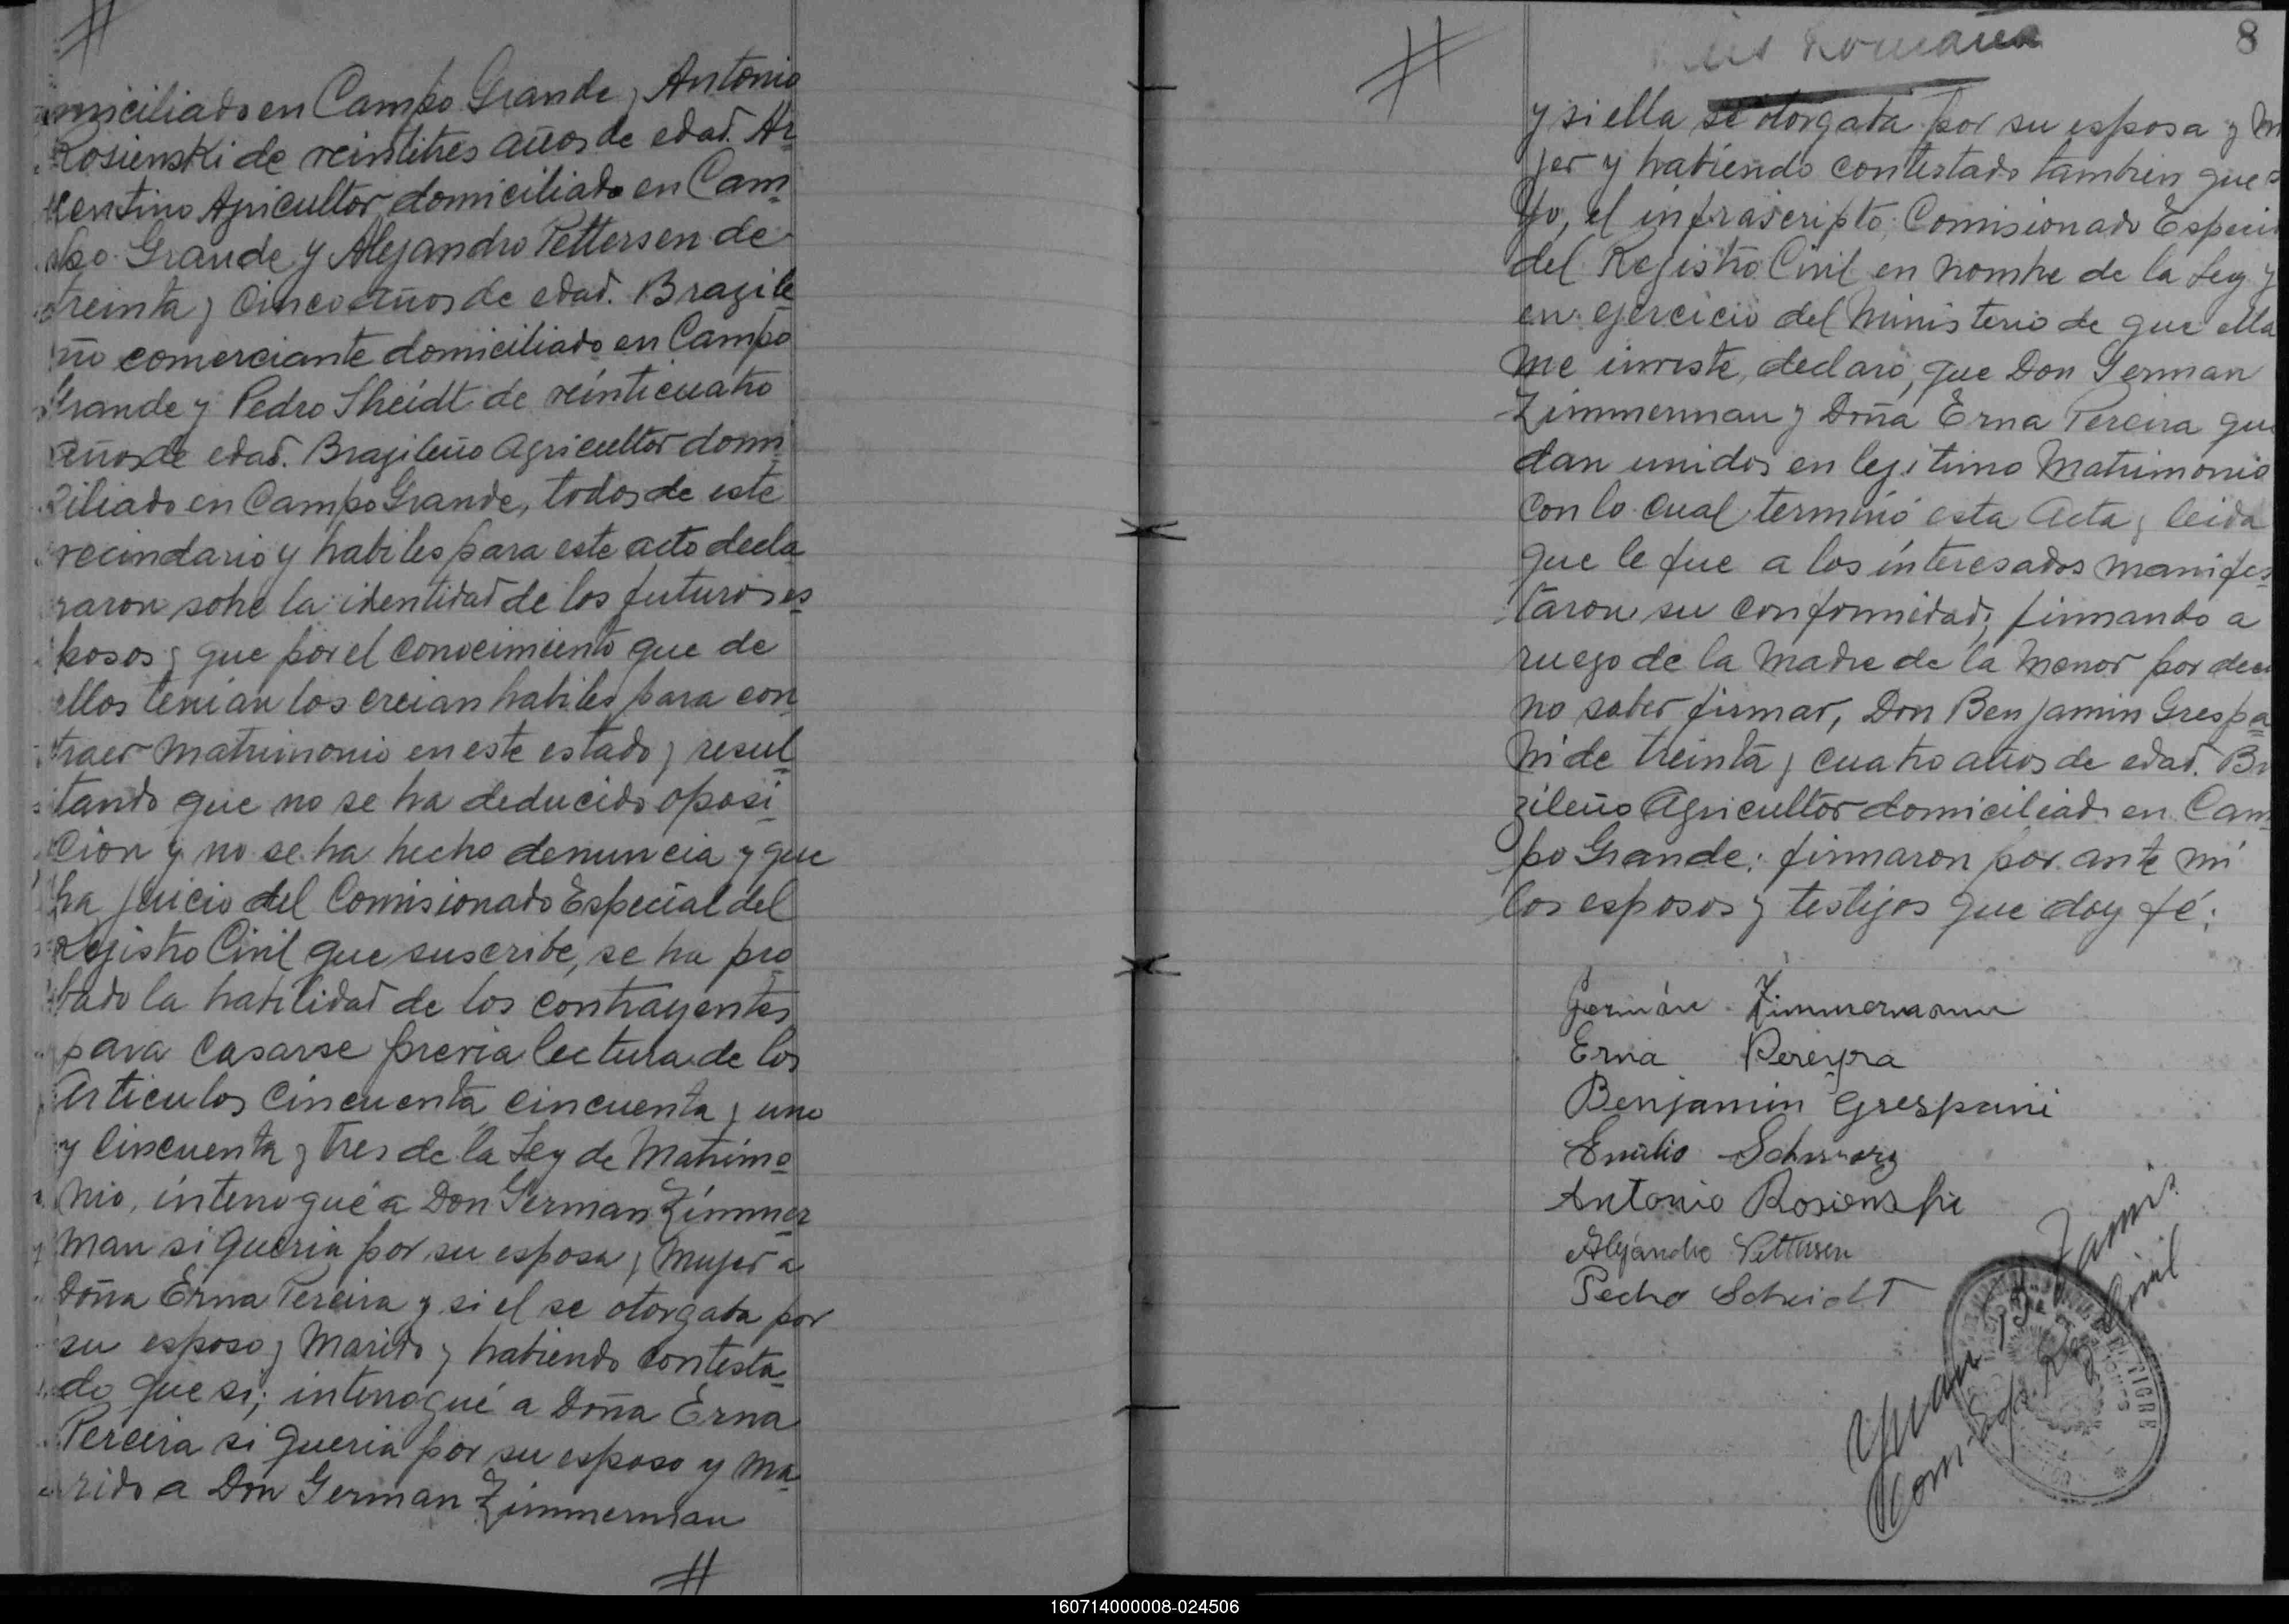 miciliado en Campo Grande y Antonio
Rosienski de veintitres años de edad. Ar
gentino Agricultor domiciliado en Cam
po Grande y Alejandro Pettersen de
treinta y cinco años de edad. Brazile
ño comerciante domiciliado en Campo
Grande y Pedro Sheidt de veinticuatro
años de edad. Brazileño Agricultor domi
ciliado en Campo Grande, todos de este
vecindario y habiles para este acto decla
raron sobre la identidad de los futuros es
posos y que por el conocimiento que de
ellos tenian los creian habiles para con
traer matrimonio en este estado y resul
tando que no se ha deducido oposi
cion y no se ha hecho denuncia y que
ha juicio del Comisionado Especial del
Registro Civil que suscribe, se ha pro
bado la habilidad de los contrayentes
para casarse previa lectura de los
Articulos cincuenta, cincuenta y uno
y cincuenta y tres de la Ley de Matrimo
nio, interrogué a Don German Zimmer
man si queria por su esposa y mujer a
Doña Erna Pereira y si el se otorgaba por
su esposo y marido y habiendo contesta
do que si; interrogué a Doña Erna
Pereira si queria por su esposo y ma
rido a Don German Zimmerman
8
y si ella se otorgaba por su esposa y mu
jer y habiendo contestado tambien que
Yo, el infrascripto Comisionado Especi
del Registro Civil en nombre de la Ley y
en ejercicio del Ministerio de que ella
me inviste, declaro, que Don German
Zimmerman y Doña Erna Pereira que
dan unidos en legitimo Matrimonio
con lo cual terminó esta Acta y leida
que le fue a los interesados manifes
taron su conformidad, firmando a
ruego de la madre de la menor por deci
no saber firmar, Don Benjamin Grespa
ni de treinta y cuatro años de edad. Br
zileño Agricultor domiciliado en Cam
po Grande: firmaron por ante mi
los esposos y testigos que doy fé:
Germán Zimmermann
Erna Pereyra
Benjamin Grespani
Emilio Schwarz
Antonio Rosienski
Alejandro Pettersen
Pedro Scheidt
Juan
Com. Esp. Reg. Civil
TIGRE
160714000008-024506